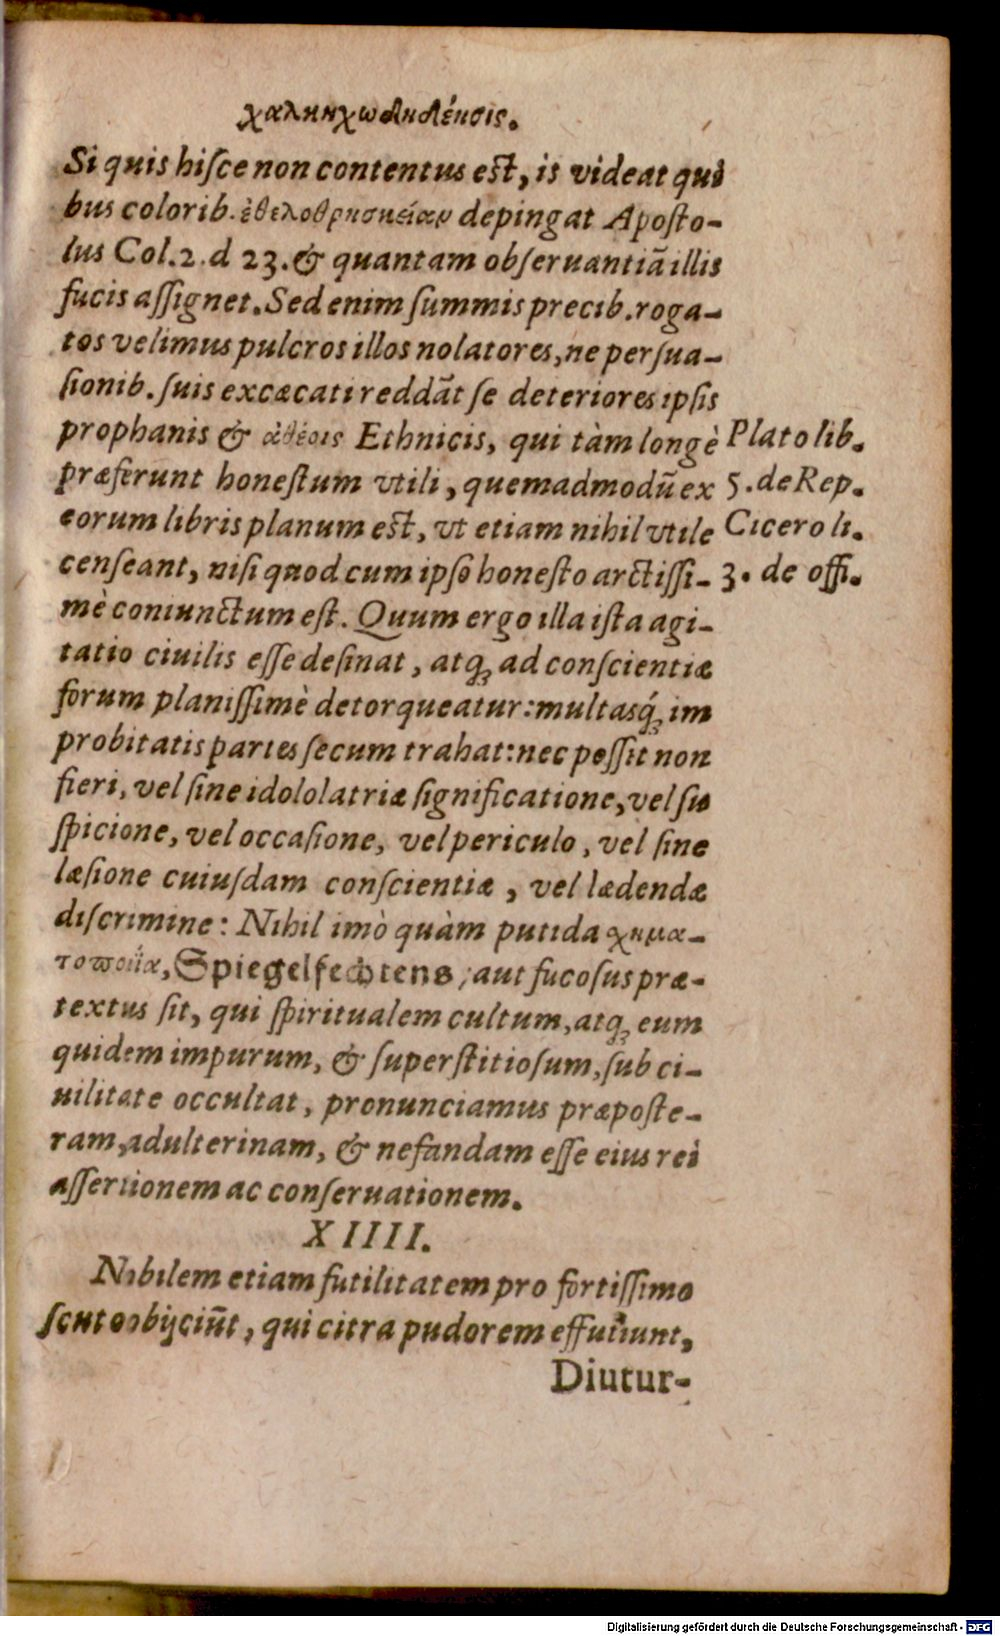 χαληηχωδηδέησις.
Si quis hiſce non contentus eſt, is videat qui
bus colorib. ἐθελοθρησκείαν depingat Apoſto-
lus Col. 2. d 23. & quantam obſeruantiā illis
fucis aſſignet. Sed enim ſummis precib. roga-
tos velimus pulcros illos nolatores, ne perſua-
ſionib. ſuis excæcati reddāt ſe deteriores ipſis
prophanis & ἀθέοις Ethnicis, qui tàm longè
præferunt honeſtum vtili, quemadmodū ex
eorum libris planum eſt, vt etiam nihil vtile
cenſeant, niſi quod cum ipſo honeſto arctiſſi-
mè coniunctum eſt. Quum ergo illa iſta agi-
tatio ciuilis eſſe deſinat, atq; ad conſcientiæ
forum planiſſimè detorqueatur: multasq́; im
probitatis partes ſecum trahat: nec poſſit non
fieri, vel ſine idololatriæ ſignificatione, vel ſu
ſpicione, vel occaſione, vel periculo, vel ſine
læſione cuiuſdam conſcientiæ, vel lædendæ
diſcrimine: Nihil imò quàm putida χημα-
τοποιΐα, Spiegelfechtens, aut fucoſus præ-
textus ſit, qui ſpiritualem cultum, atq; eum
quidem impurum, & ſuperſtitioſum, ſub ci-
uilitate occultat, pronunciamus præpoſte-
ram, adulterinam, & nefandam eſſe eius rei
aſſertionem ac conſeruationem.
XIIII.
Nihilem etiam futilitatem pro fortiſſimo
ſcuto obijciūt, qui citra pudorem effutiunt,
Diutur-
Plato lib.
5. de Rep.
Cicero li.
3. de offi.
Digitalisierung gefördert durch die Deutsche Forschungsgemeinschaft - DFG